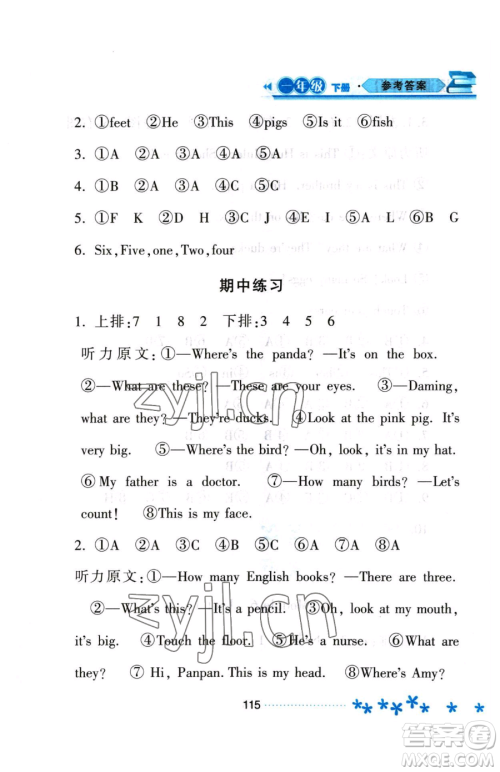 一年级 下册 · 参考答案
2. ①feet ②He ③This ④pigs ⑤Is it ⑥fish
3. ①A ②A ③A ④A ⑤A
4. ①B ②A ③A ④C ⑤C
5. ①F K ②D H ③I J ④E L ⑤C M ⑥B G
6. Six, Five, one, Two, four
期中练习
1. 上排:7 1 8 2 下排:3 4 5 6
听力原文:①—Where's the panda? —It's on the box.
②—What are these? —These are your eyes. ③—Daming,
what are they? —They're ducks. ④Look at the pink pig. It's
very big. ⑤—Where's the bird? —Oh, look, it's in my hat.
⑥My father is a doctor. ⑦—How many birds? —Let's
count! ⑧This is my face.
2. ①A ②A ③C ④B ⑤C ⑥A ⑦A ⑧A
听力原文:①—How many English books? —There are three.
②—What's this? —It's a pencil. ③Oh, look at my mouth,
it's big. ④Touch the floor. ⑤He's a nurse. ⑥—What are
they? ⑦ Hi, Panpan. This is my head. ⑧Where's Amy?
115
zyjl.cn
zyjl.cn
答案圈
MXQE.COM